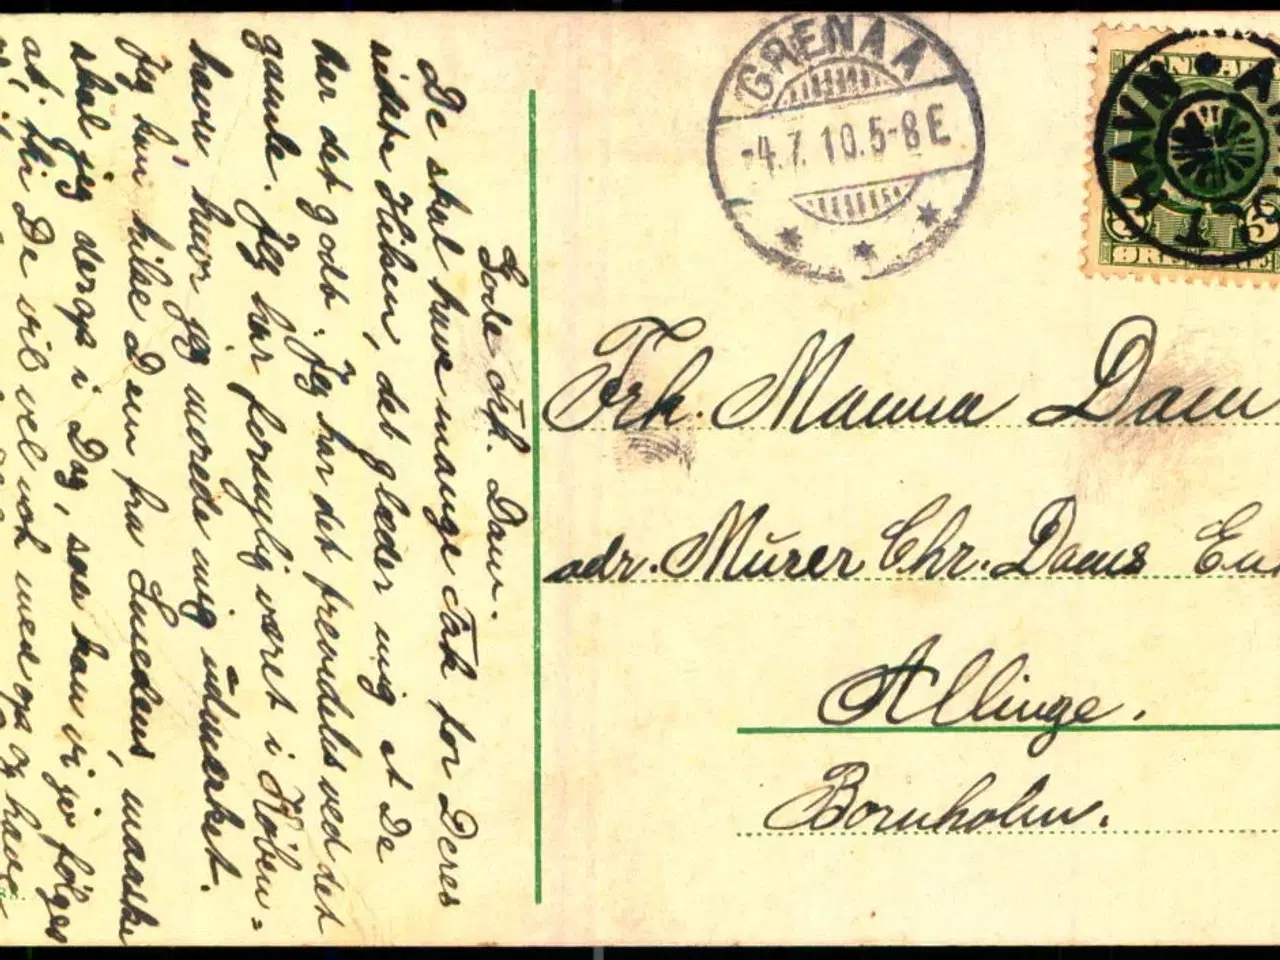 Gode Frk. Dam.
De skal have mange Tak for Deres
sidste Hilsen, det glæder mig at De
har det godt. Jeg har det fremdeles ved det
gamle. Jeg har forøvrig været i Köben=
havn, hvor jeg morede mig udmærket.
Jeg kan hilse Dem fra Smedens, maaske
skal jeg derop i Dag, saa kan vi jo følges
at, thi De vil vel nok med op og have
GRENAA
-4.7.10.5-8E
5
ØRE
Frk. Manna Dam
adr. Murer Chr. Dams
Allinge.
Bornholm.